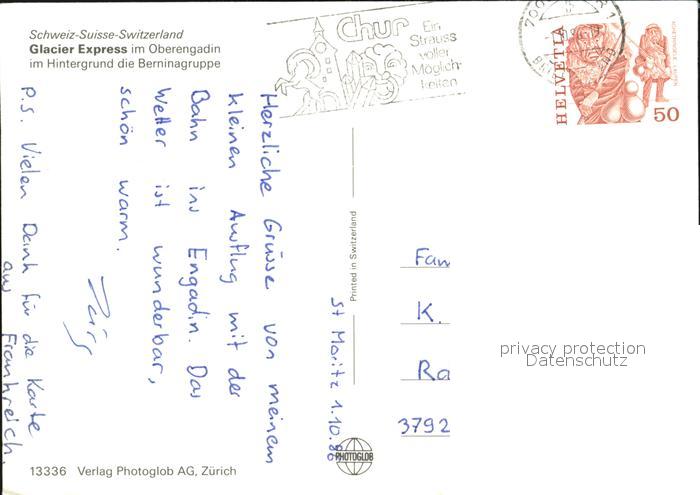 Schweiz-Suisse-Switzerland
Glacier Express im Oberengadin
im Hintergrund die Berninagruppe
Chur
Ein
Strauss
voller
Möglich-
keiten
HELVETIA
50
St Moritz 1.10.86
Herzliche Grüsse von meinem
kleinen Ausflug mit der
Bahn ins Engadin. Das
Wetter ist wunderbar,
schön warm.
P.S. Vielen Dank für die Karte
aus Frankreich.
Printed in Switzerland
Frau
K.
Ra
3792
privacy protection
Datenschutz
PHOTOGLOB
13336 Verlag Photoglob AG, Zürich